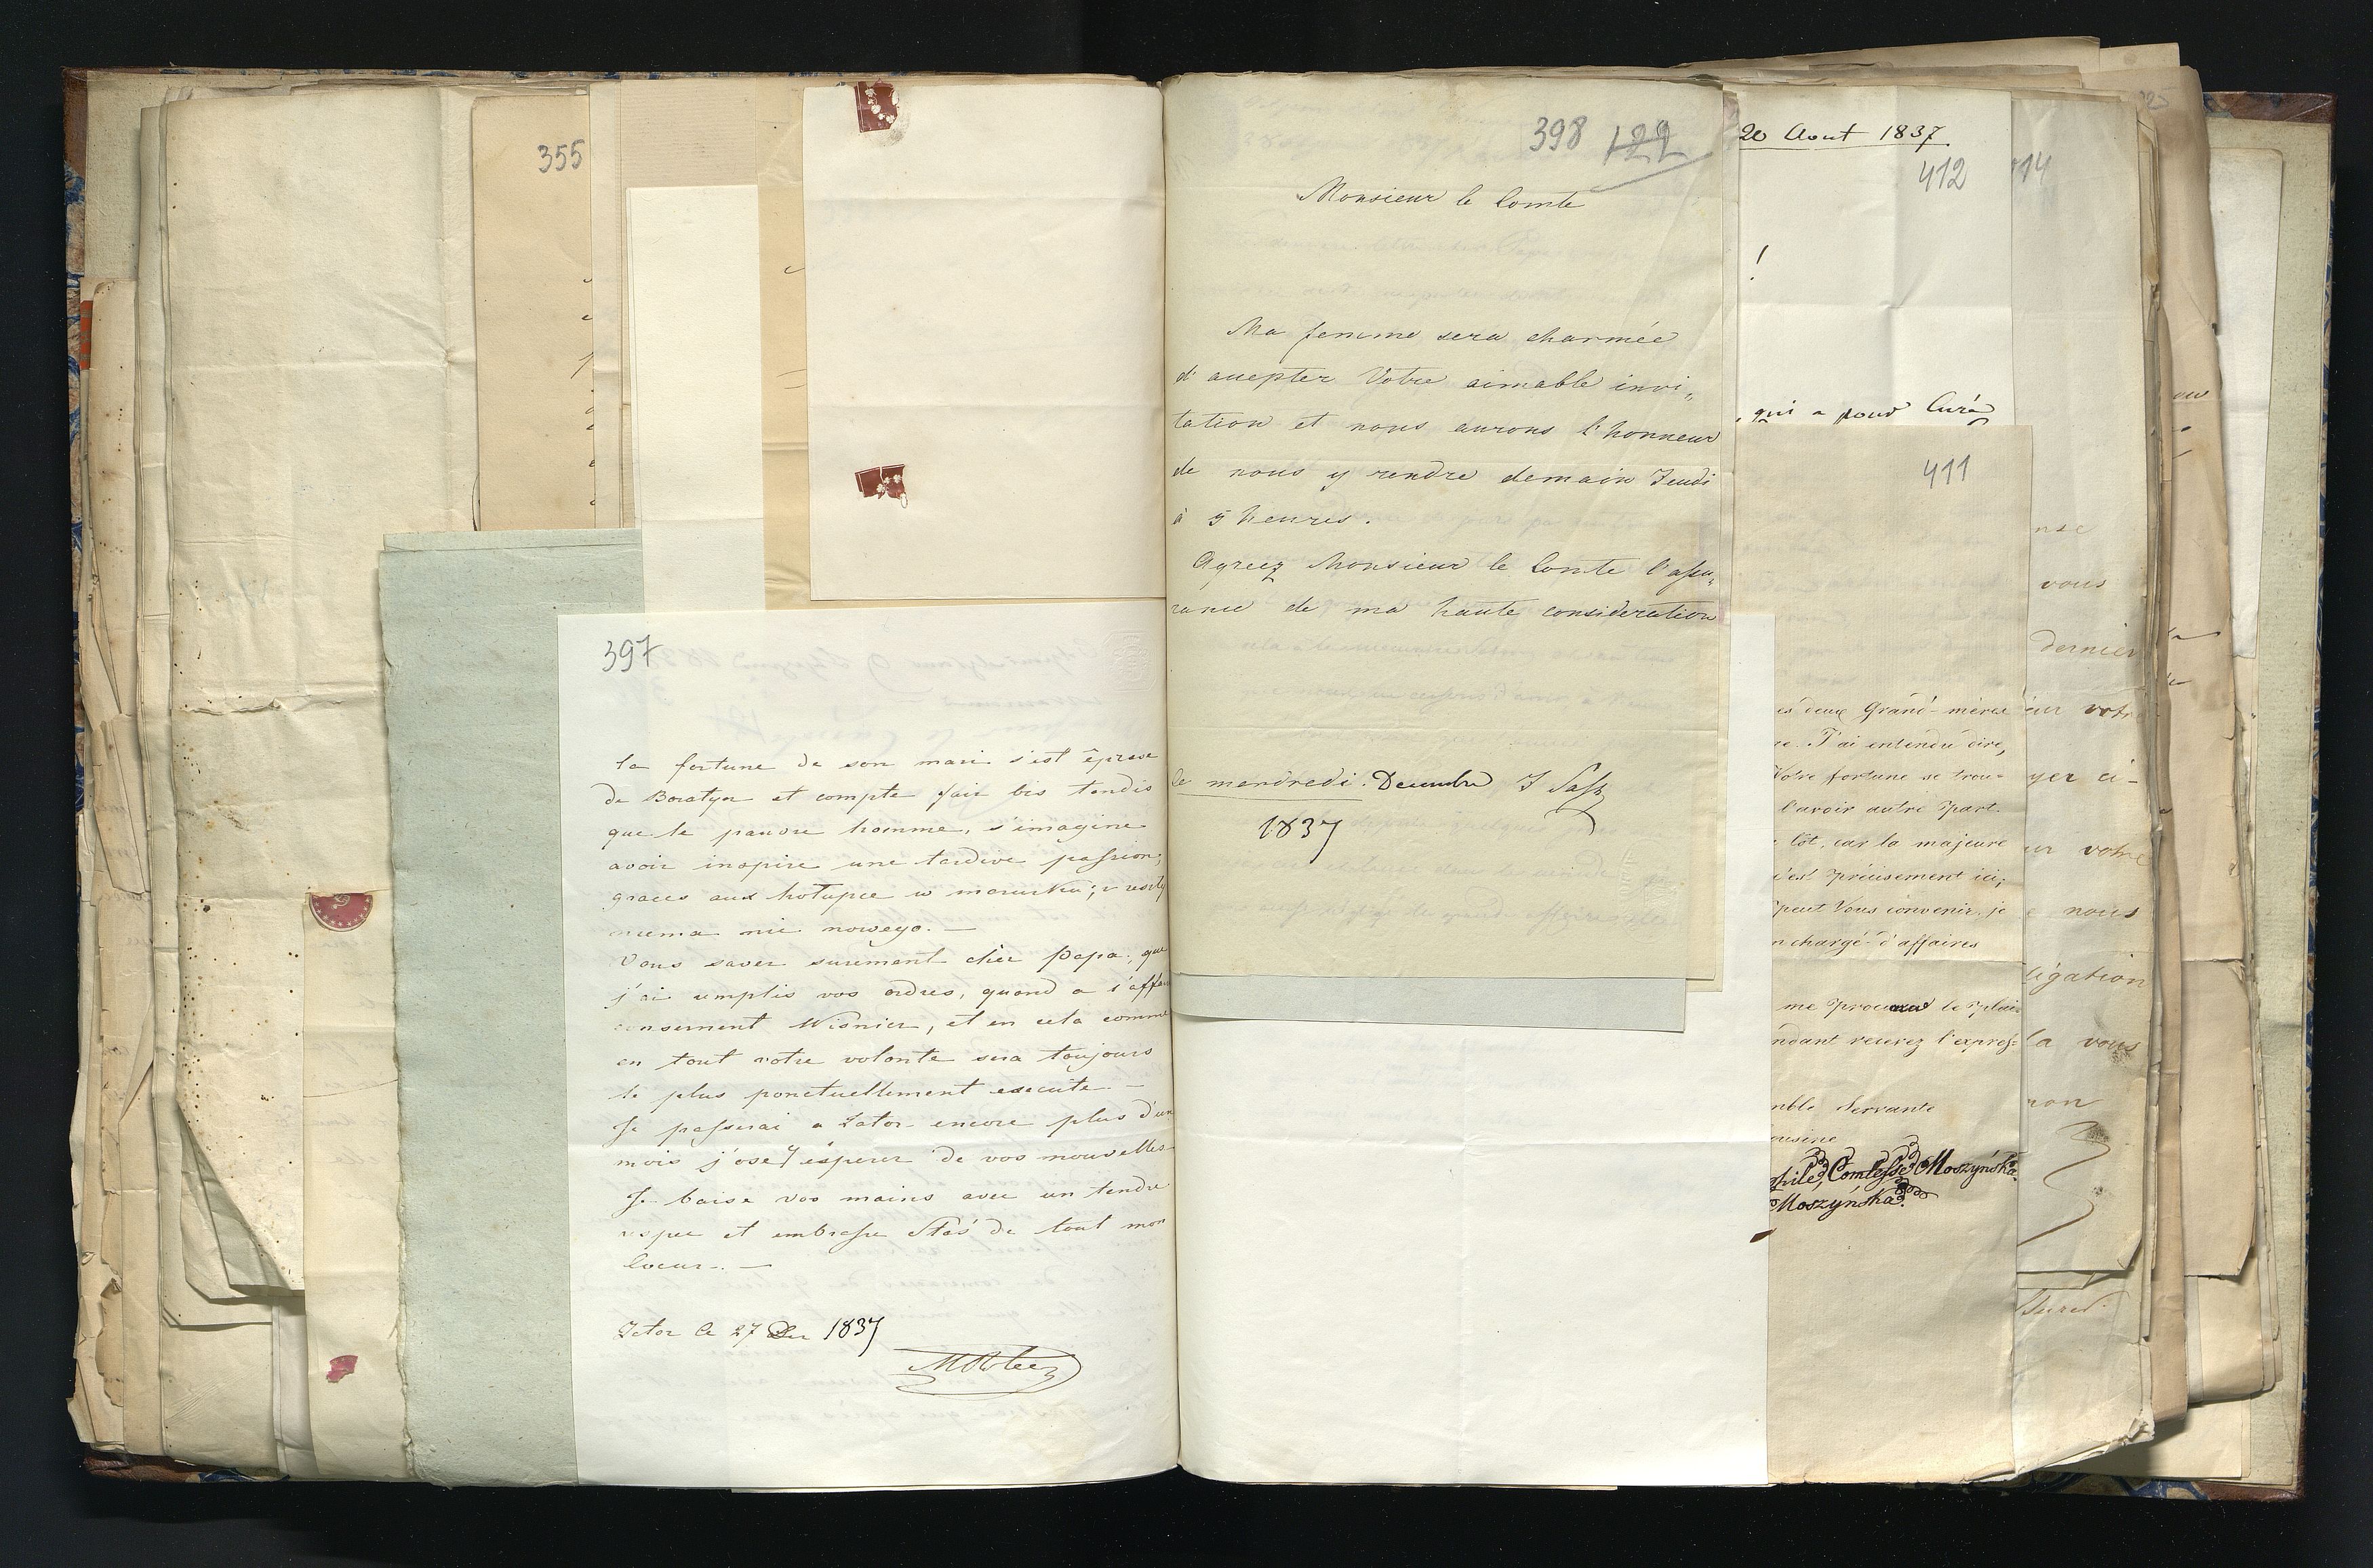 355
397
la fortune de son mari s'est éprise
de Boratyn et compte fair bis tandis
que le pauvre homme, s'imagine
avoir inspire une tardive passion;
graces aux hołupce w mazurku; z reszty
niema nic nowego. —
Vous savez surement chèr Papa, que
j'ai remplis vos ordres, quand a l'affaire
conserment Wisnier, et en cela comme
en tout votre volonte sera toujours
le plus ponctuellement execute —
Je passerai a Zator encore plus d'un
mois j'ose y ésperer de vos nouvelles
Je baise vos mains avec un tendre
respec et embrasse Staś de tout mon
Coeur. —
Zator le 27 1837
398 122
Monsieur le Comte
Ma femme sera charmée
d'accepter Votre aimable invi„
tation et nous aurons l'honneur
de nous y rendre demain Jeudi
à 5 heures.
Agreez Monsieur le Comte l'assu„
rance de ma haute consideration
le mercredi. Decembre
1837
20 Aout 1837
412
!
qui a pour Curé
411
es deux Grand-méres
re. J'ai entendu dire,
Votre fortune se trou=
l'avoir autre part.
tôt, car la majeure
c'est précisement ici;
peut Vous convenir, je
n chargé d'affaires
me procurer le plai
ndant recevez l'expres=
mble Servante
ousine
Comtesse Moszyńska
Moszyńska
nse
vous
dernier
eur votre
yer ci-
ur votre
e nous
ligation
la vous
non